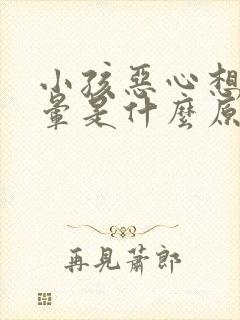 小孩惡心想
暈是什麼原
再見蕭郎